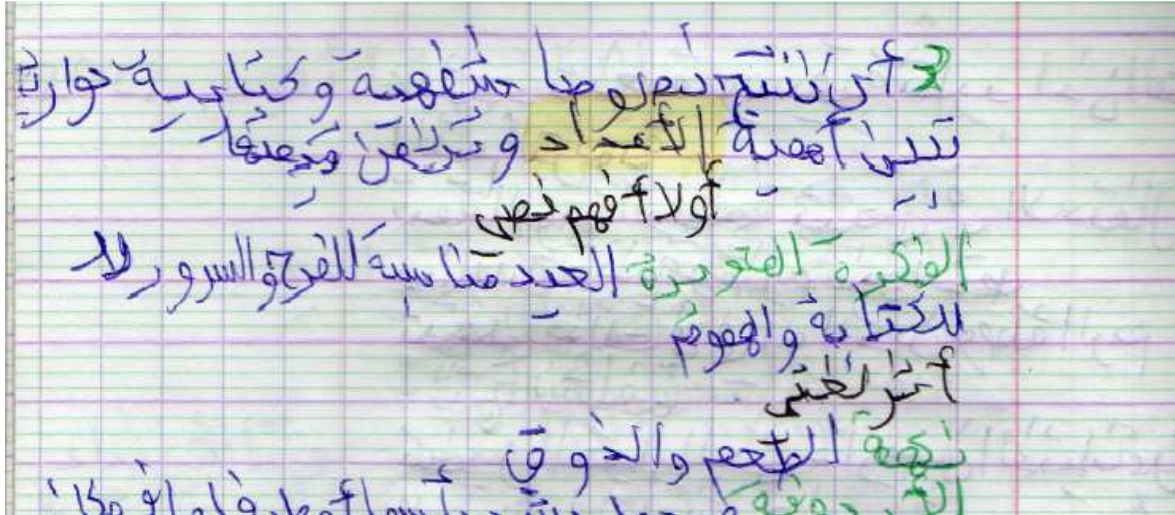 3 أن ننتج نصوصا شفهية وكتابية حوارية
تبين أهمية الأعداد و
أولا أفهم نصي
الفكرة العامة العيد مناسبة للفرح والسرور لا
للكتابة والهموم
أثري لغتي
نكهة الطعم والذوق